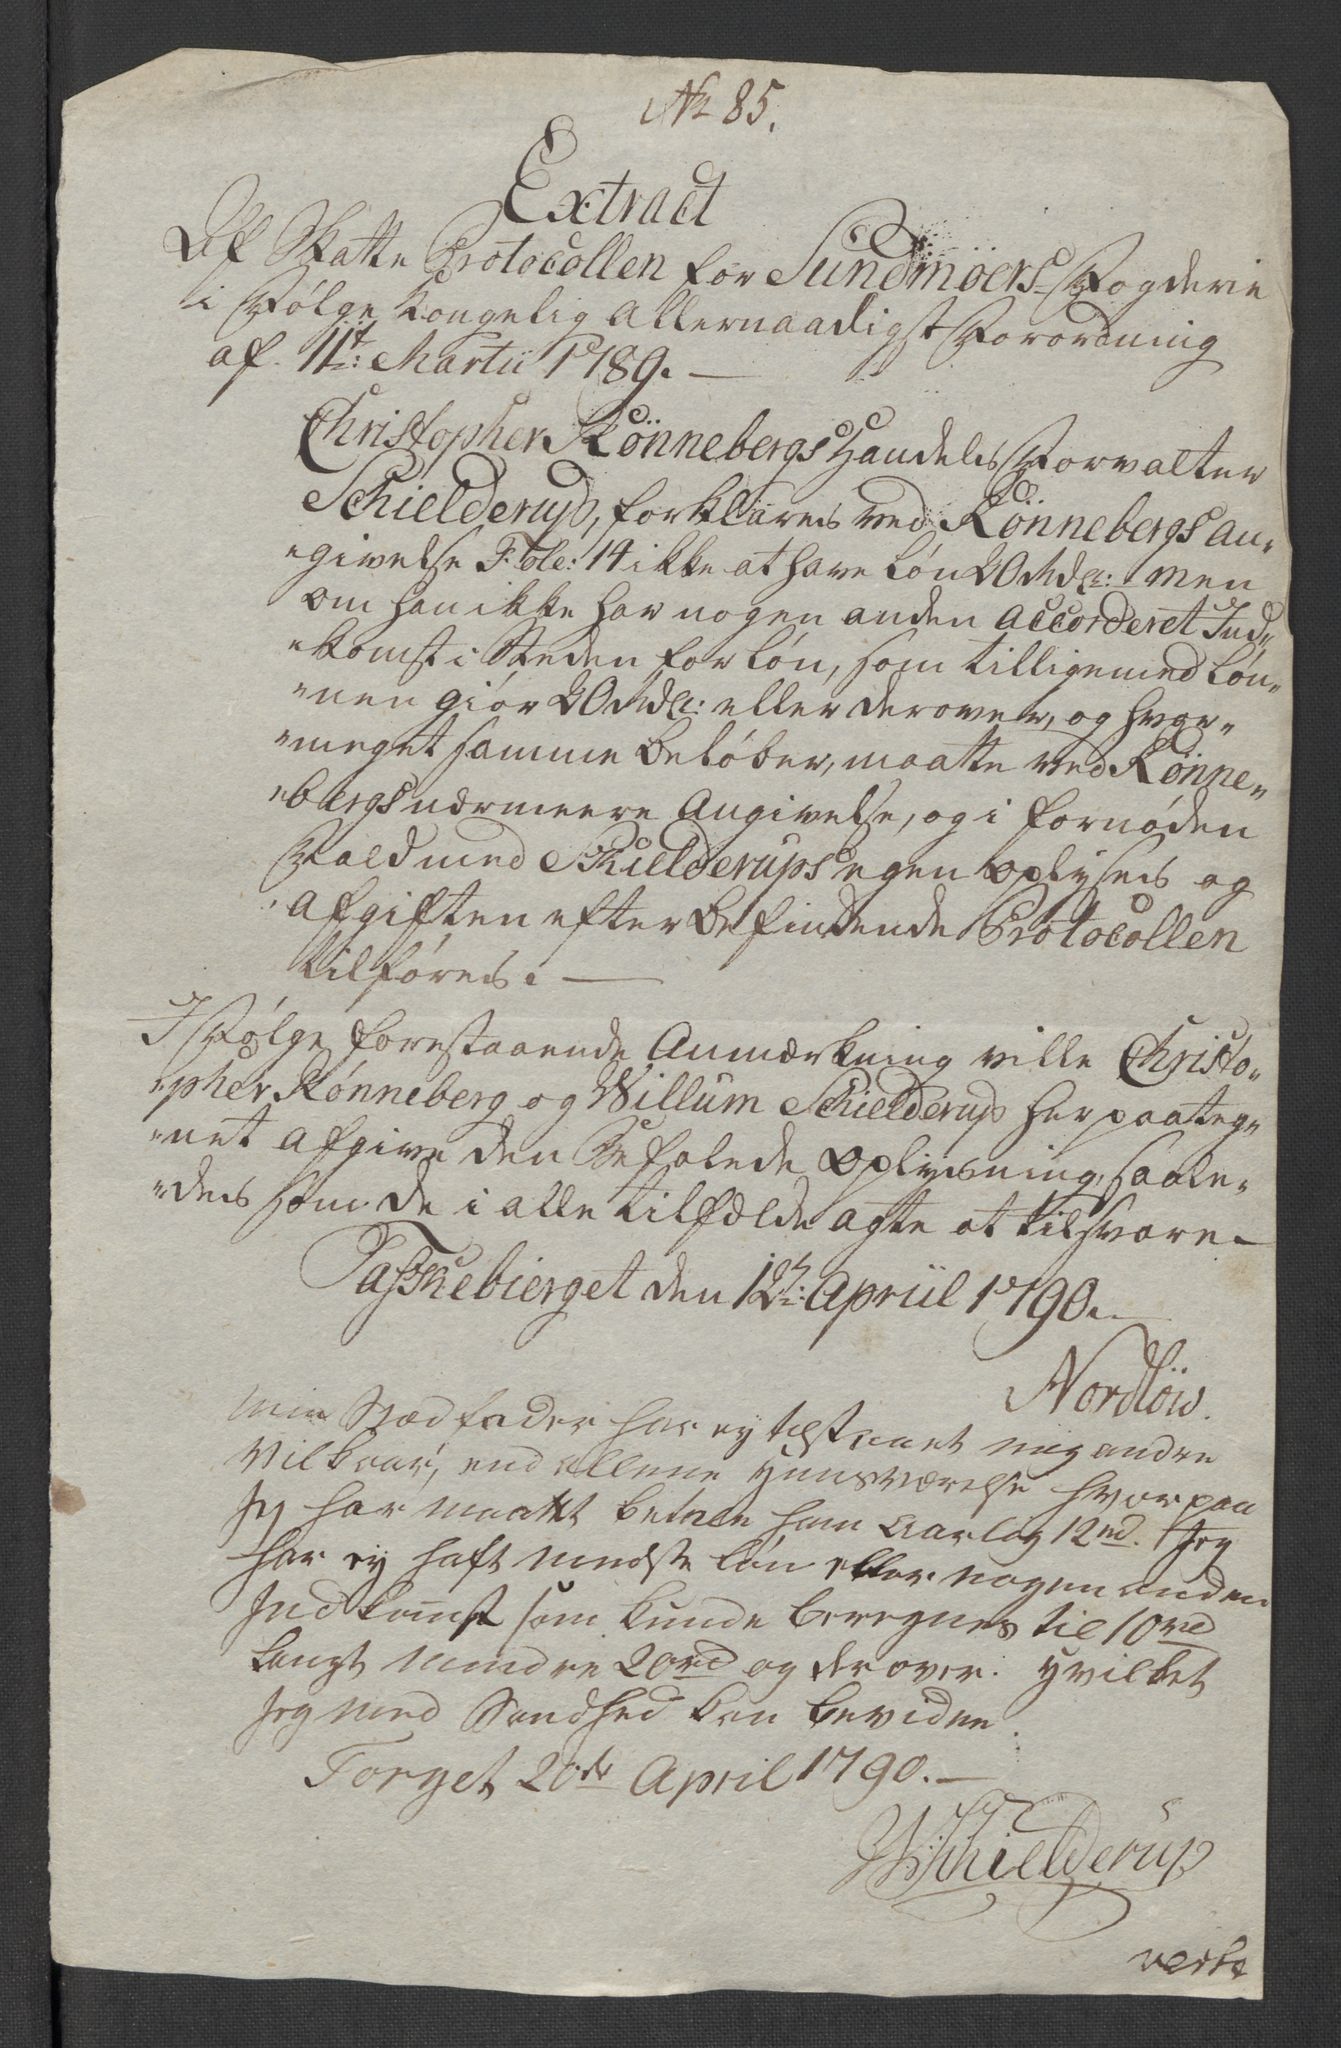 No 85.
Extract
Af Skatte Protocollen for Sundmöers Fogderie
i Følge Kongelig Allernaadigst Forordning
af 11t: Martii 1789. —
Christopher Rönnebergs Handels Forvalter
Schielderup, forklares ved Rönnebergs an-
-givelse Fole: 14 ikke at have Løn 20 Rdr: men
om han ikke har nogen anden accorderet Ind-
-komst i Steden for Løn, som tilligemed Løn-
-nen giör 20 Rdr: eller derover, og hvor-
-meget samme beløber, maatte ved Rönne-
-bergs nærmere Angivelse, og i fornøden
Fald med Schielderups egen oplyses og
afgiften efter befindende Protocollen
tilføres. —
I Følge forestaaende Anmærkning ville Christo-
-pher Rønneberg og Willum Schielderup her paateg-
-net afgive den Befalede oplysning, saale-
-des som de i alle tilfælde agte at tilsvare. —
Taskebierget den 12te: Apriil 1790. —
Nordlöw.
min Stædfader har ey tilstaaet mig andre
Vilkaar, end allene huusværelse hvorpaa
Jeg har maatt betale ham aarlig 12 rd. Jeg
har ey haft mindste løn eller nogen anden
Indkomst som kunde beregnes til 10 rd
langt mindre 20 rd og derover. hvilket
Jeg med Sandhed kan bevidne.
Torget 20de April 1790. —
W Schielderup
verte